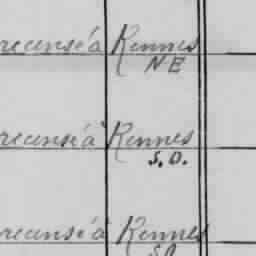 recensé à Rennes
N-E
recensé à Rennes
S.O.
recensé à Rennes
S.O.